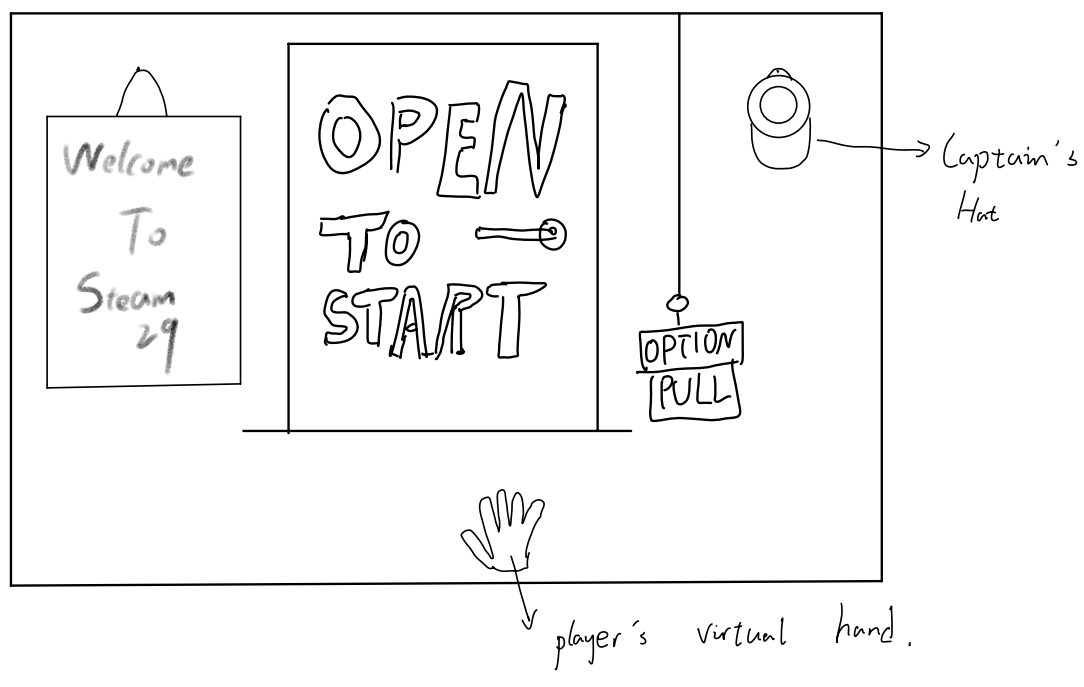 Welcome
To
Steam
29
OPEN
TO
START
OPTION
PULL
Captain's
Hat
player's virtual hand.